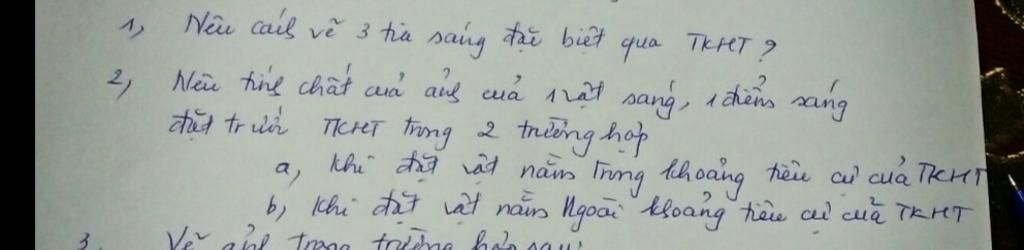 1, Nêu cách vẽ 3 tia sáng đặc biệt qua TKHT ?
2, Nêu tính chất của ảnh của 1 vật sáng, 1 điểm sáng
đặt trước TKHT trong 2 trường hợp
a, Khi đặt vật nằm trong khoảng tiêu cự của TKHT
b, Khi đặt vật nằm Ngoài khoảng tiêu cự của TKHT
3. Vẽ ảnh trong trường hợp sau: